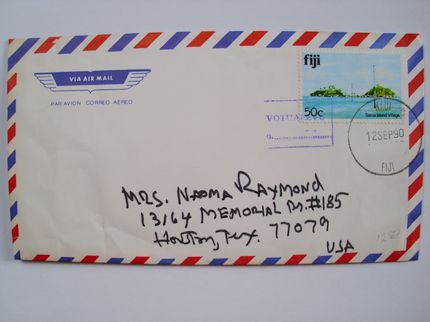 VIA AIR MAIL
PAR AVION CORREO AEREO
fiji
50c
Island Village
VOTUALEVU
12SEP90
FIJI
MRS. NAOMA RAYMOND
13164 MEMORIAL DR. #185
HOUSTON, TEX. 77079
USA